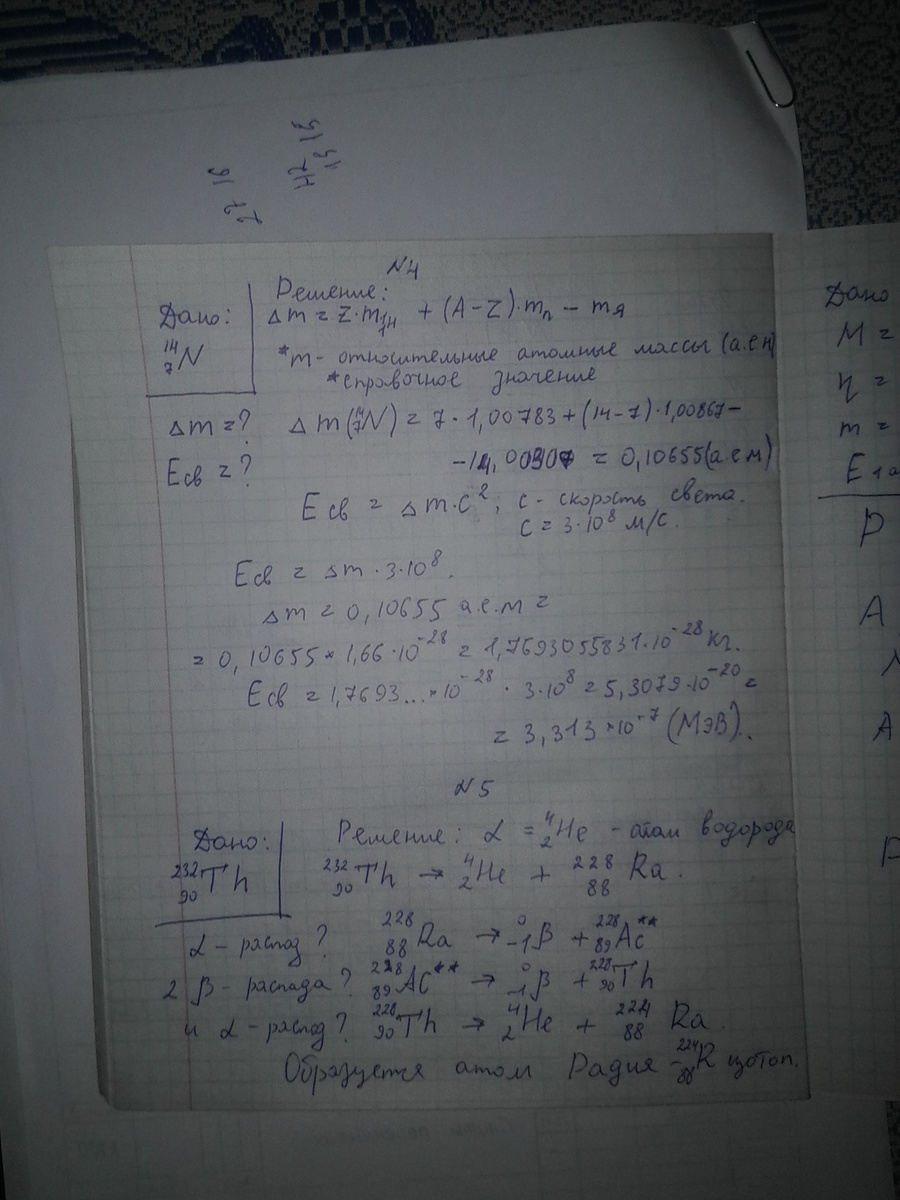 91 16
15 42
91
22
N4
Решение:
Дано: Δm = Z·m ¹₁H + (A-Z)·mn - mя
¹⁴₇N *m - относительные атомные массы (а.е.м
*справочное значение
Δm=? Δm(¹⁴₇N) = 7·1,00783+(14-7)·1,00867-
Eсв=? = 0,10655(а.е.м)
Eсв = Δm·c², c - скорость света.
c = 3·10⁸ м/с.
Eсв = Δm·3·10⁸.
Δm = 0,10655 а.е.м =
= 0,10655×1,66·10⁻²⁸ = 1,7693055831·10⁻²⁸ кг.
Eсв = 1,7693...×10⁻²⁸ · 3·10⁸ = 5,3079·10⁻²⁰ =
= 3,313×10⁻⁷ (МэВ).
N5
Дано: Решение: α = ⁴₂He - атом водорода
²³²₉₀Th ²³²₉₀Th → ⁴₂He + ²²⁸₈₈Ra.
α-распад? ²²⁸₈₈Ra → ⁰₋₁β + ²²⁸₈₉Ac**
2 β-распада? ²²⁸₈₉Ac** → ⁰₋₁β + ²²⁸₉₀Th
и α-распад? ²²⁸₉₀Th → ⁴₂He + ²²⁴₈₈Ra.
Образуется атом Радия ²²⁴₈₈R изотоп.
Дано
M =
η =
m =
E
Р
А
А